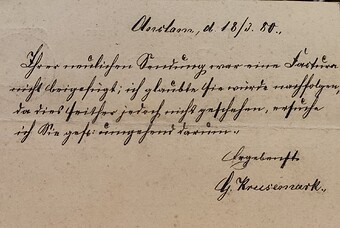 Anclam, d. 18/3. 80.,
Ihrer neulichen Sendung war eine Factura
nicht beigefügt; ich glaubte sie würde nachfolgen,
da dies seither jedoch nicht geschehen, ersuche
ich Sie gefl: umgehend darum.-
Ergebenst
G. Kreisemark.,